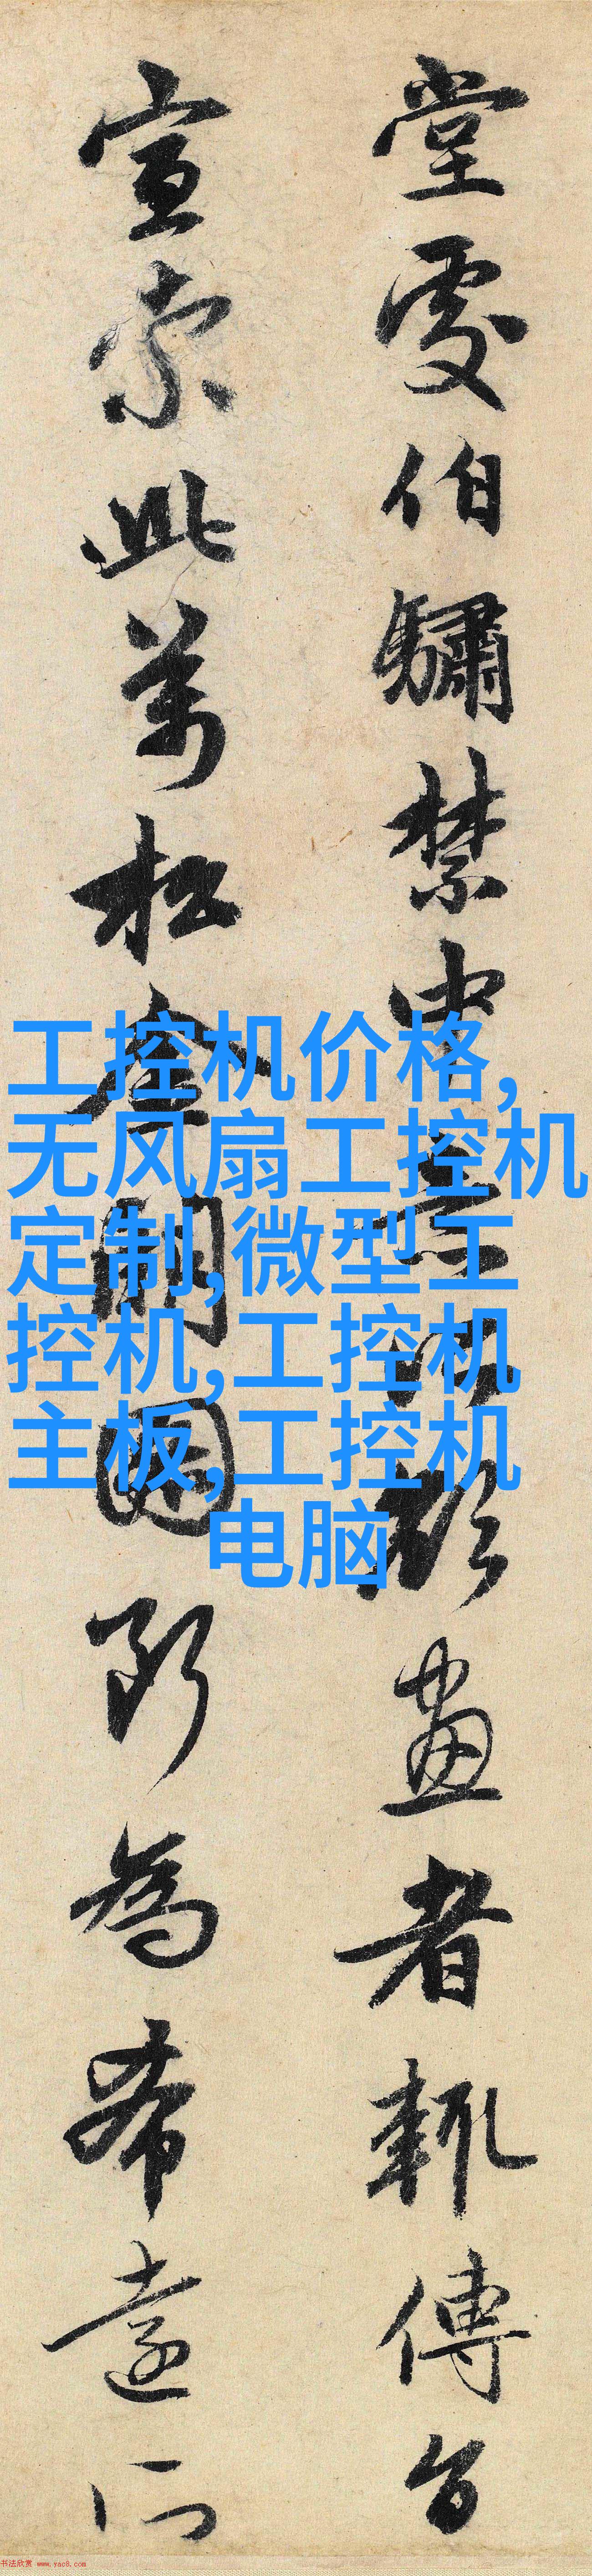 堂處伯驌禁中
畫者輒傳旨
宣索此萬松金
明園
所為希遠所
工控机价格,
无风扇工控机
定制,微型工
控机,工控机
主板,工控机
电脑
书法欣赏 www.yac8.com